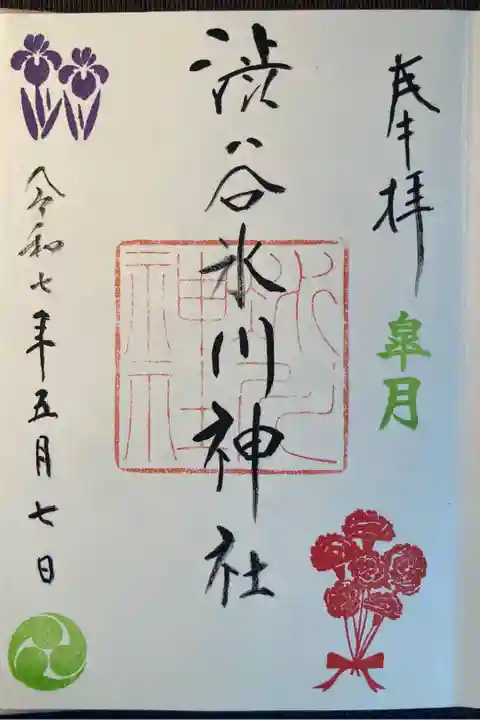 奉拝
皐月
渋谷氷川神社
氷川神社
令和七年五月七日